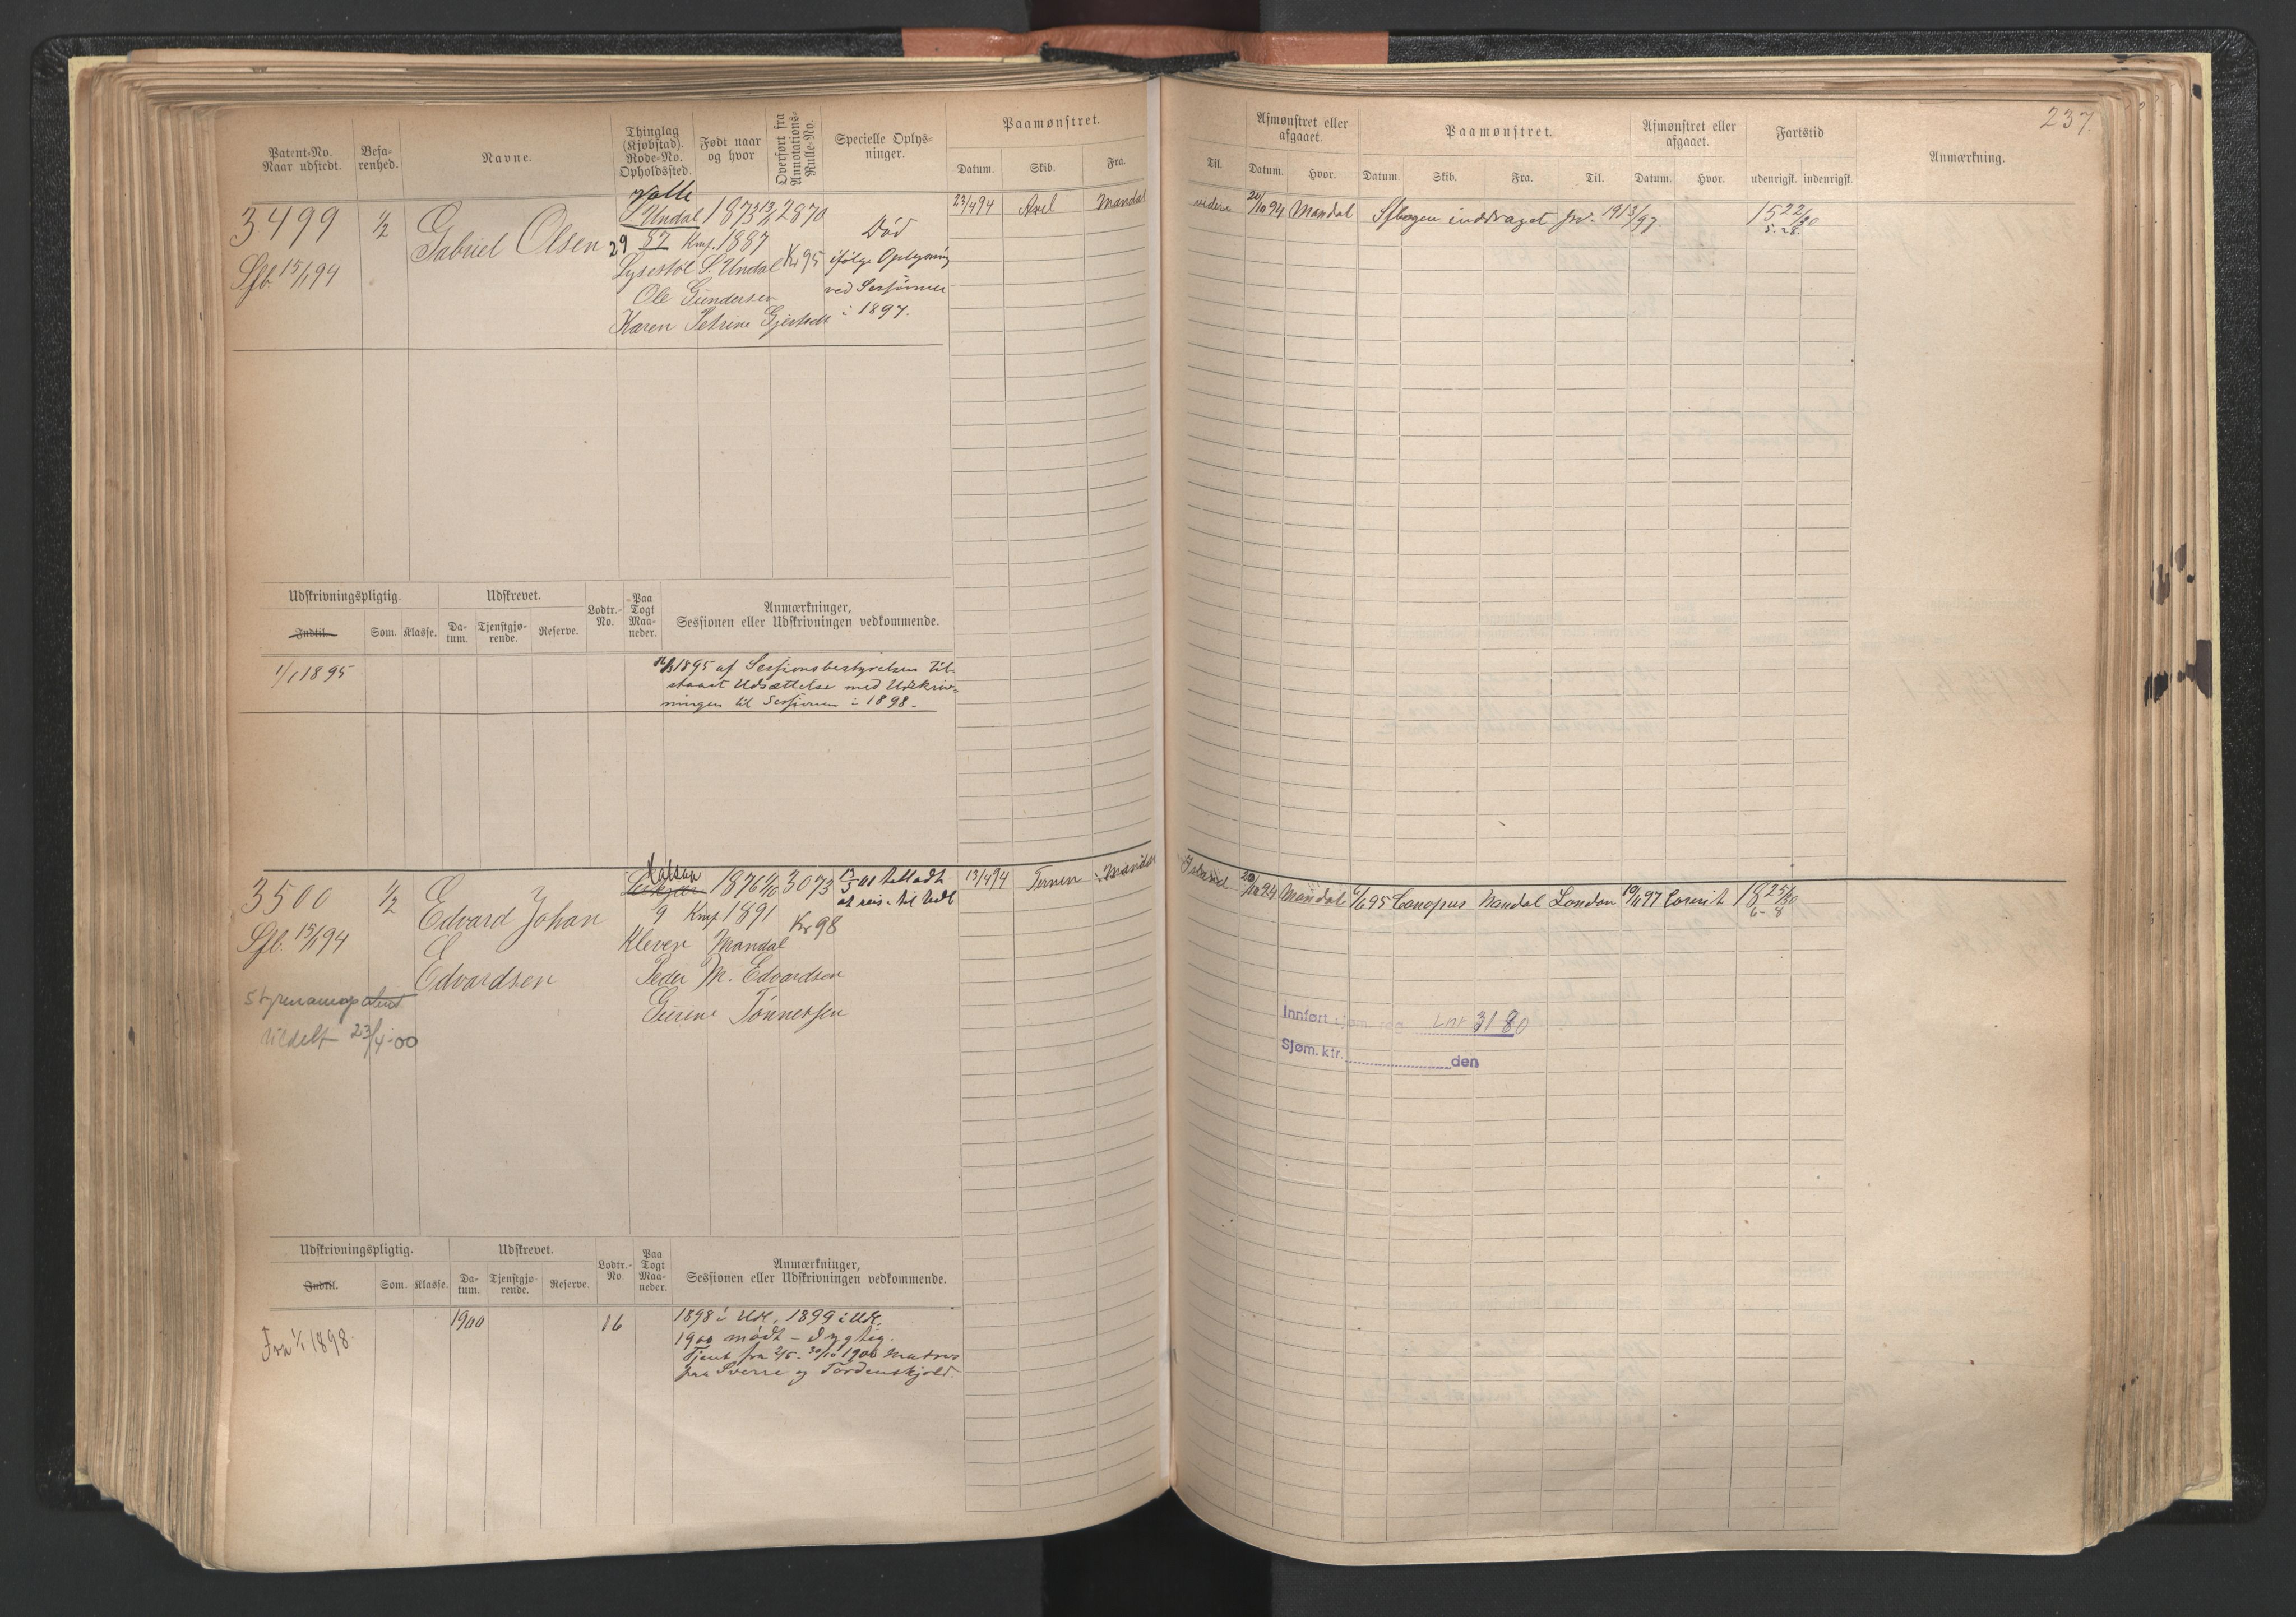 237
Patent-No.
Naar udstedt.
Befa-
renhed.
Navne.
Thinglag
(Kjøbstad).
Rode-No.
Opholdssted.
Født naar
og hvor
Overført fra
Annotations-
Rulle-No.
Specielle Oplys-
ninger.
Paamønstret.
Datum. Skib. Fra.
Til.
Afmønstret eller
afgaaet.
Datum. Hvor.
Paamønstret.
Datum. Skib. Fra. Til.
Afmønstret eller
afgaaet.
Datum. Hvor.
Fartstid
udenrigsk. indenrigsk.
Anmærkning.
3499
Sfb. 15/1 94
1/2
Gabriel Olsen
Valle
S. Undal
29 87
1873 13/
Kmf. 1887
2870
Kr 95
Lysestøl S. Undal
Ole Gundersen
Karen Petrine
Død
ifølge Oplysning
ved Sessionen
i 1897.
23/4 94 Axel Mandal
videre 20/10 94 Mandal Sfbogen inddraget
15 22/30
5. 28
Udskrivningspligtig.
Indtil. Som. Klasse.
Udskrevet.
Da-
tum.
Tjenstgjø-
rende.
Reserve.
Lodtr.-
No.
Paa
Togt
Maa-
neder.
Anmærkninger,
Sessionen eller Udskrivningen vedkommende.
1/1 1895
1895 af Sessionsbestyrelsen til-
staaet Udsættelse med Udskriv-
ningen til Sessionen i 1898.
3500
Sfb. 15/1 94
1/2
Edvard Johan
Edvardsen
Halsaa
9
1876
Kmf 1891
3073
Kr 98
Kleven Mandal
Peder M. Edvardsen
Gurine Tønnessen
01 tilladt
at reise til Udl
13/4 94 Ternen Mandal
Island 20/10 94 Mandal 1/6 95 Canopus Mandal London 10/6 97
18 25/30
6 - 8
Styrmandspatent
Uldelt 23/4-00
Innført sjøm. reg. Lnr 3180
Sjøm.ktr. den
Udskrivningspligtig.
Indtil. Som. Klasse.
Udskrevet.
Da-
tum.
Tjenstgjø-
rende.
Reserve.
Lodtr.-
No.
Paa
Togt
Maa-
neder.
Anmærkninger,
Sessionen eller Udskrivningen vedkommende.
Fra 1/1 1898.
1900
16
1898 i Udl. 1899 i Udl.
1900 mødt - Dygtig.
Tjent fra 2/5 - 30/10 1900 Matros
paa Sverre og Tordenskjold.